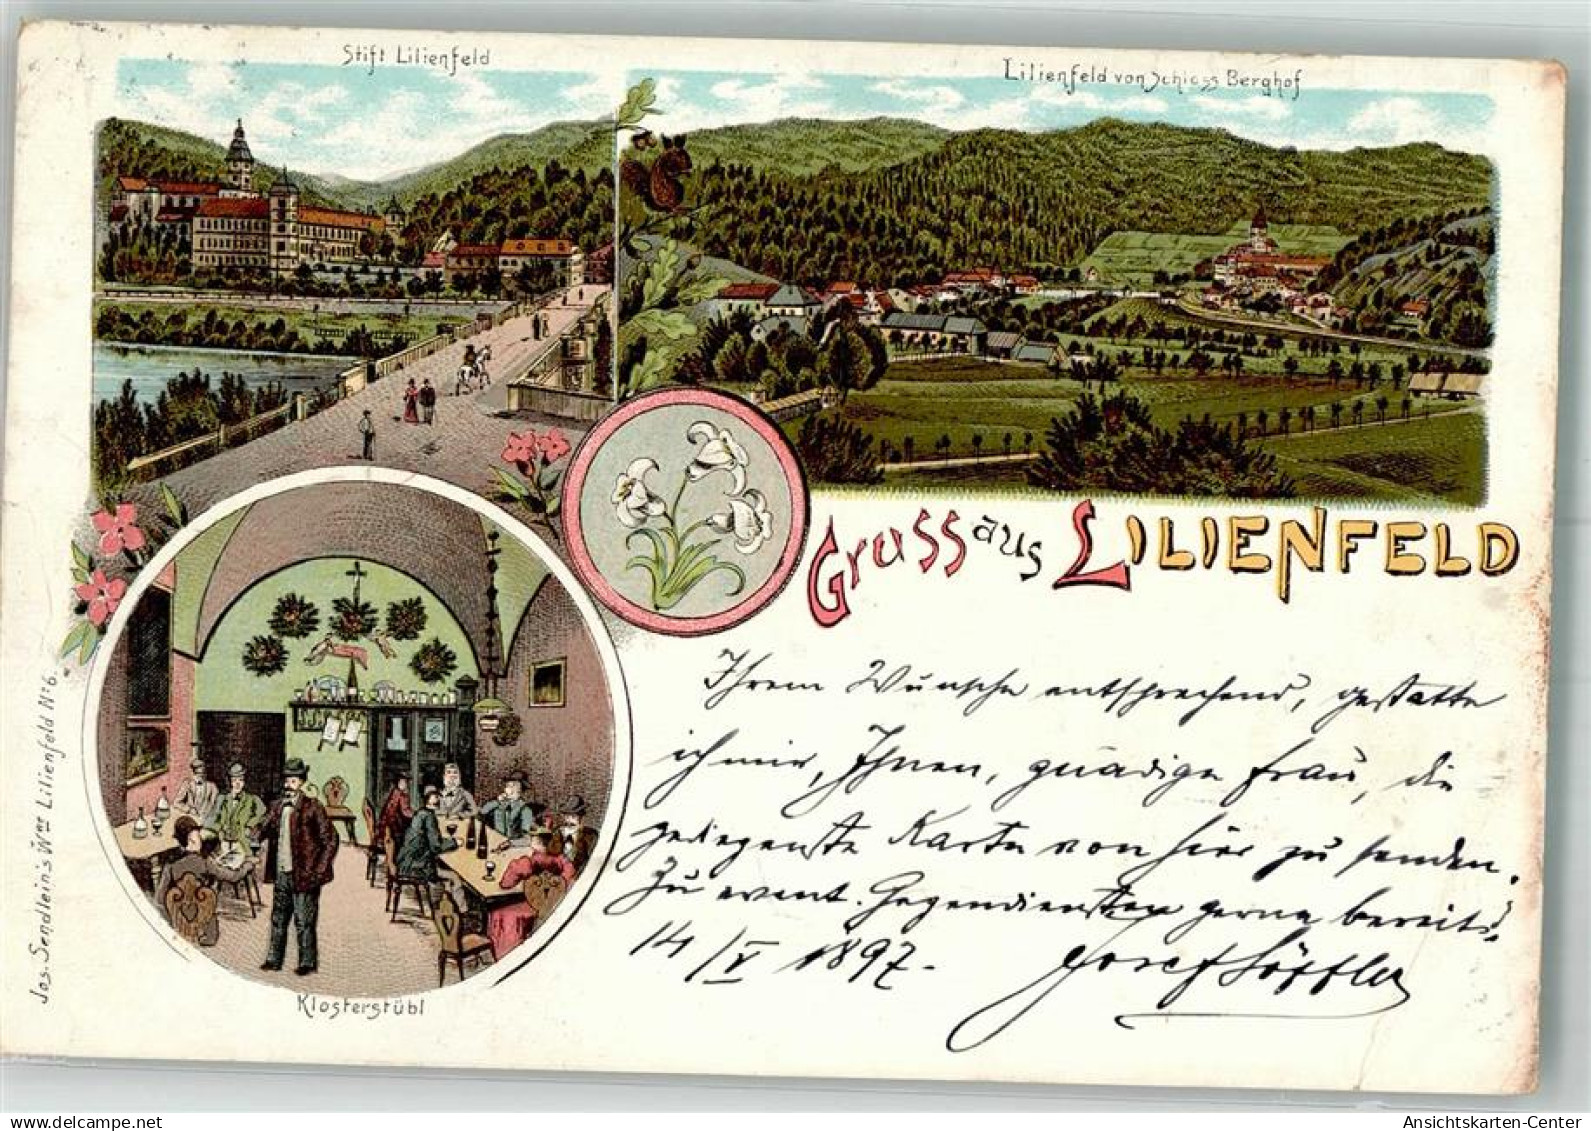 Stift Lilienfeld
Lilienfeld von Schloss Berghof
Gruss aus LILIENFELD
Ihrem Wunsche entsprechend, gestatte
ich mir, Ihnen, gnädige Frau, die
gediegenste Karte von hier zu senden.
Zu event. Gegendiensten gerne bereit
14/V 1897. Josef Löffler
Klosterstübl
Jos. Sendlein's Wwe Lilienfeld No 6.
AnsichtsKarten-Center